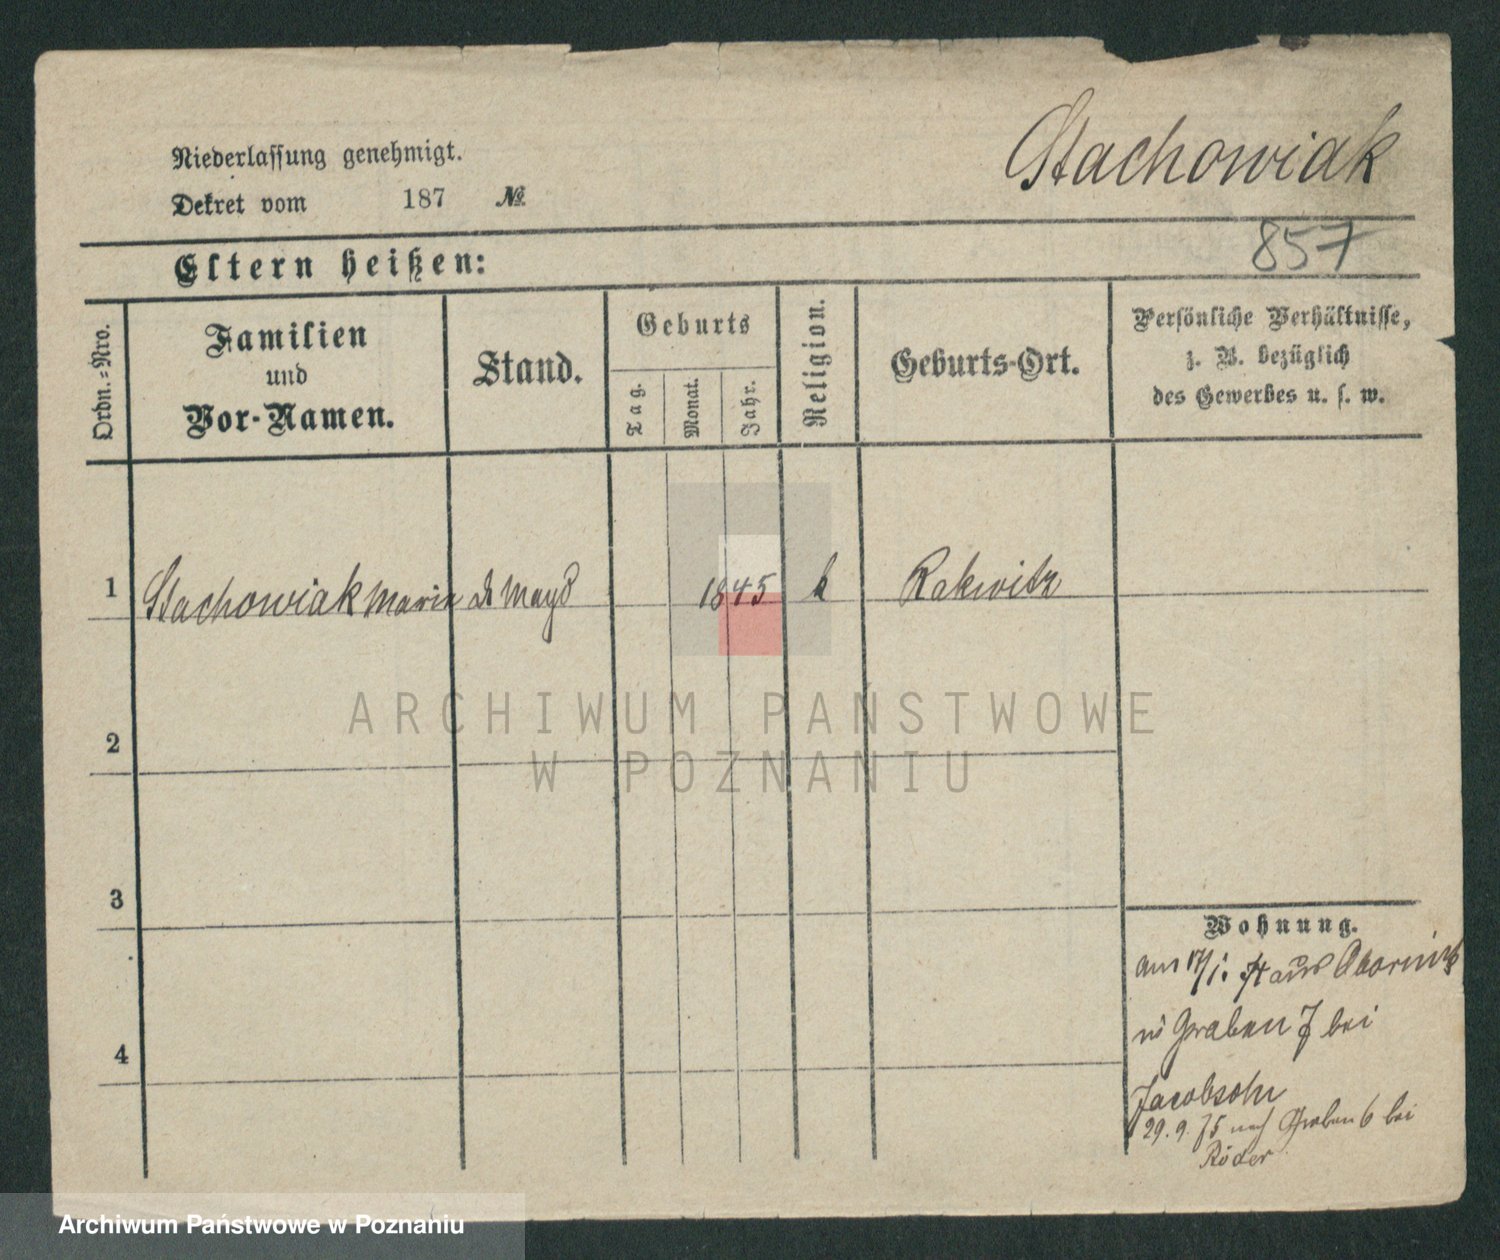 Stachowiak
Niederlassung genehmigt.
Dekret vom 187 №
857
Eltern heißen:
Ordn.-Nro.
Familien
und
Vor-Namen.
Stand.
Geburts
Tag.
Monat.
Jahr.
Religion.
Geburts-Ort.
Persönliche Verhältnisse,
z. B. bezüglich
des Gewerbes u. s. w.
1 Stachowiak Maria Magd 1845 k Rakwitz
2
3
4
Wohnung.
am 17/1. 74 aus Obornik
Graben 7 bei
Jacobsohn
29. 9. 75 nach Graben 6 bei
Röder
ARCHIWUM PAŃSTWOWE
W POZNANIU
Archiwum Państwowe w Poznaniu